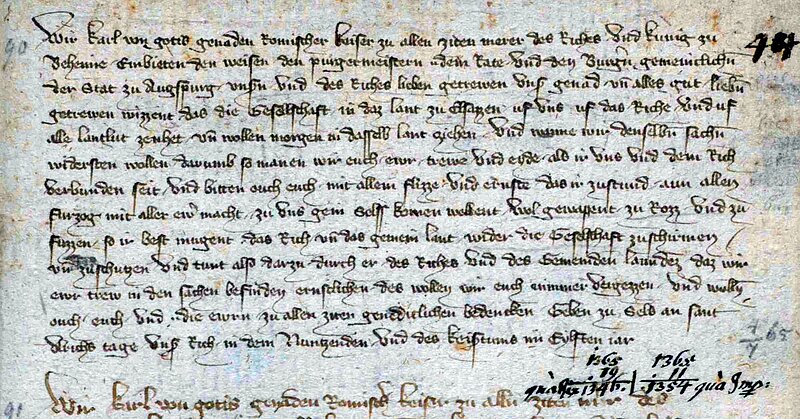 90
Wir karl von gotis genaden Romischer keiser zu allen ziten merer des Riches und kunig zu
Beheme Embieten den weisen den purgermeistern dem Rate und den Burgern gemeinclichen
der Stat zu Augspurg unsern und des Riches lieben getrewen unser genad und alles gut lieben
getrewen wizzent das die Gesellschaft in daz lant zu Elsazzen uf uns uf das Riche und uf
alle lantlut zeuhet und wollen morgen in dasselb lant ziehen und wanne wir denselben sachen
widersten wollen darumb so manen wir euch ewr trewe und eyde als ir uns und dem Rich
verbunden seit und bitten ouch euch mit allem flizze und ernste das ir zustund an allen
furzog mit aller ewr macht zu uns gein Selss komen wellent wol gewapent zu Rozz und zu
fuzzen so ir best mugent das Rich und das gemein lant wider die Geselschaft zuschirmen
und zuschutzen und tunt also darzu durch er des Riches und des Gemeinden landez daz wir
ewr trew in den sachen befinden ernstlichen des wollen wir euch nimmer vergezzen und wollen
ouch euch und die ewrn zu allen ziten genediclichen bedencken Geben zu Sels an sant
Ulrichs tage unser Rich in dem Nuntzenden und des keisertums im Eylften iar
1365 1365
19 11
1346 1354 quà Imp:
91
Wir karl von gotis genaden Romischer keiser zu allen ziten merer des